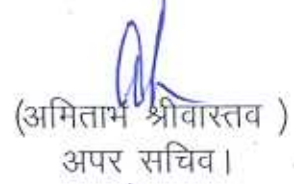 (अमिताभ श्रीवास्तव )
अपर सचिव।